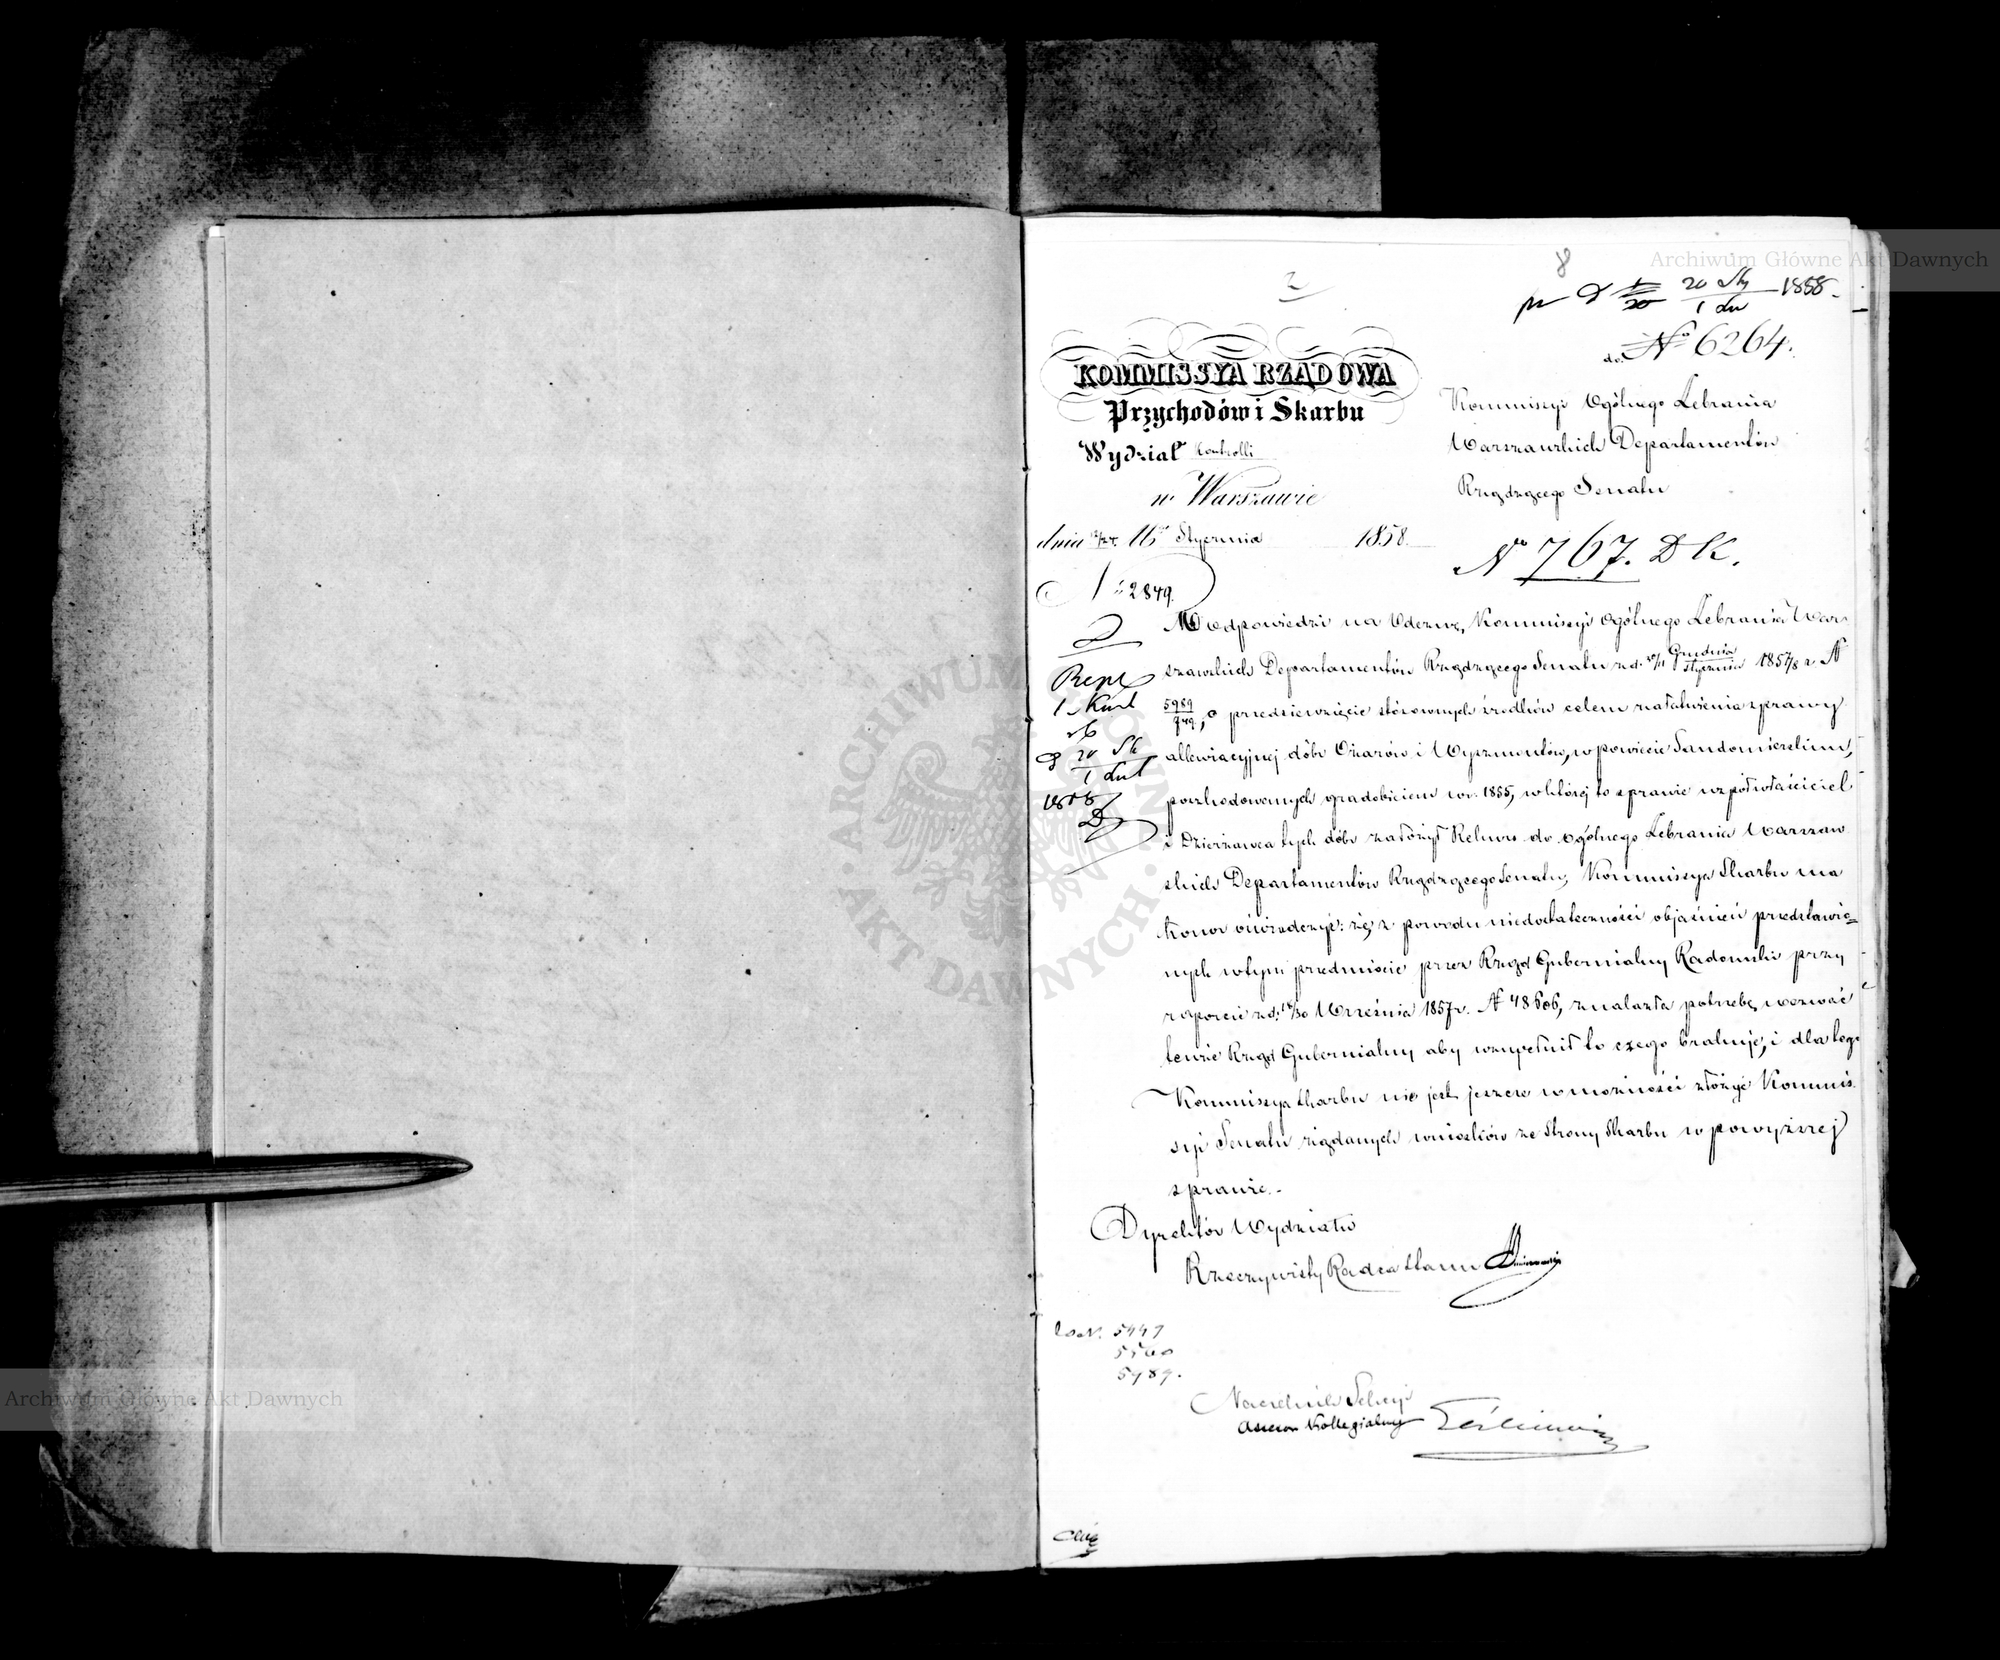 8
2
20
1
1858.
do № 6264.
KOMMISSYA RZĄDOWA
Przychodów i Skarbu
Wydział Kontrolli
w Warszawie
dnia 16 Stycznia 1858.
N: 2849.
Kommissyi Ogólnego Zebrania
Warszawskich Departamentów
Rządzącego Senatu
N 767. D K.
W odpowiedzi na Odezwę, Kommissyi Ogólnego Zebrania War-
szawskich Departamentów Rządzącego Senatu z d. Grudnia Stycznia 1857/8 r. N
5989/749, o przedsięwzięcie stósownych środków celem załatwienia sprawy
allewiacyjnej dóbr Ożarów i Wyszmontów, w powiecie Sandomierskim,
poszkodowanych gradobiciem w r. 1855, w której to sprawie współwłaściciel
i Dzierżawca tych dóbr założył Rekurs do Ogólnego Zebrania Warszaw-
skich Departamentów Rządzącego Senatu, Kommissya Skarbu ma
honor oświadczyć: że, z powodu niedostateczności objaśnień przedstawio-
nych w tym przedmiocie przez Rząd Gubernialny Radomski przy
raporcie z d: 18/30 Września 1857 r. N 48606, znalazła potrzebę wezwać
tenże Rząd Gubernialny aby uzupełnił to czego brakuje, i dla tego
Kommissya Skarbu nie jest jeszcze w możności złożyć Kommis-
syi Senatu żądanych wniosków ze strony Skarbu w powyższej
sprawie.-
Dyrektór Wydziału
Rzeczywisty Radca Stanu
5447
5560
5989.
Naczelnik Sekcyi
Assesor Kollegialny
ARCHIWUM GŁÓWNE AKT DAWNYCH
Archiwum Główne Akt Dawnych
Archiwum Główne Akt Dawnych